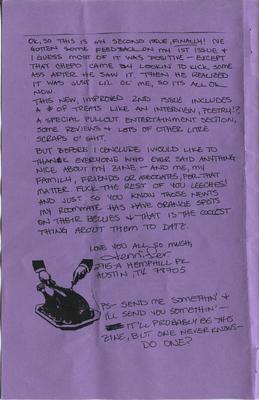 OK, SO THIS IS MY SECOND ISSUE, FINALLY! I'VE
GOTTEN SOME FEEDBACK ON MY 1ST ISSUE &
I GUESS MOST OF IT WAS POSITIVE - EXCEPT
THAT CHEPO CAME BY LOOKIN TO KICK SOME
ASS AFTER HE SAW IT. THEN HE REALIZED
IT WAS JUST LIL OL' ME, SO ITS ALL OK
NOW.
THIS NEW, IMPROVED 2ND ISSUE INCLUDES
A # OF TREATS LIKE AN INTERVIEW, POETRY!?,
A SPECIAL PULLOUT ENTERTAINMENT SECTION,
SOME REVIEWS & LOTS OF OTHER LITTLE
SCRAPS O' SHIT.
BUT BEFORE I CONCLUDE I WOULD LIKE TO
THANK EVERYONE WHO EVER SAID ANYTHING
NICE ABOUT MY ZINE - AND ME, MY
FAMILY, FRIENDS OR ASSOCIATES, FOR THAT
MATTER. FUCK THE REST OF YOU LEECHES!
AND JUST SO YOU KNOW THOSE NEWTS
MY ROOMMATE HAS HAVE ORANGE SPOTS
ON THEIR BELLIES & THAT IS THE COOLEST
THING ABOUT THEM TO DATE.
LOVE YOU ALL SO MUCH,
Jennifer
2915-A HEMPHILL PK
AUSTIN, TX 78705
PS- SEND ME SOMETHIN' &
I'LL SEND YOU SOMETHIN' -
IT'LL PROBABLY BE THIS
ZINE, BUT ONE NEVER KNOWS -
DO ONE?